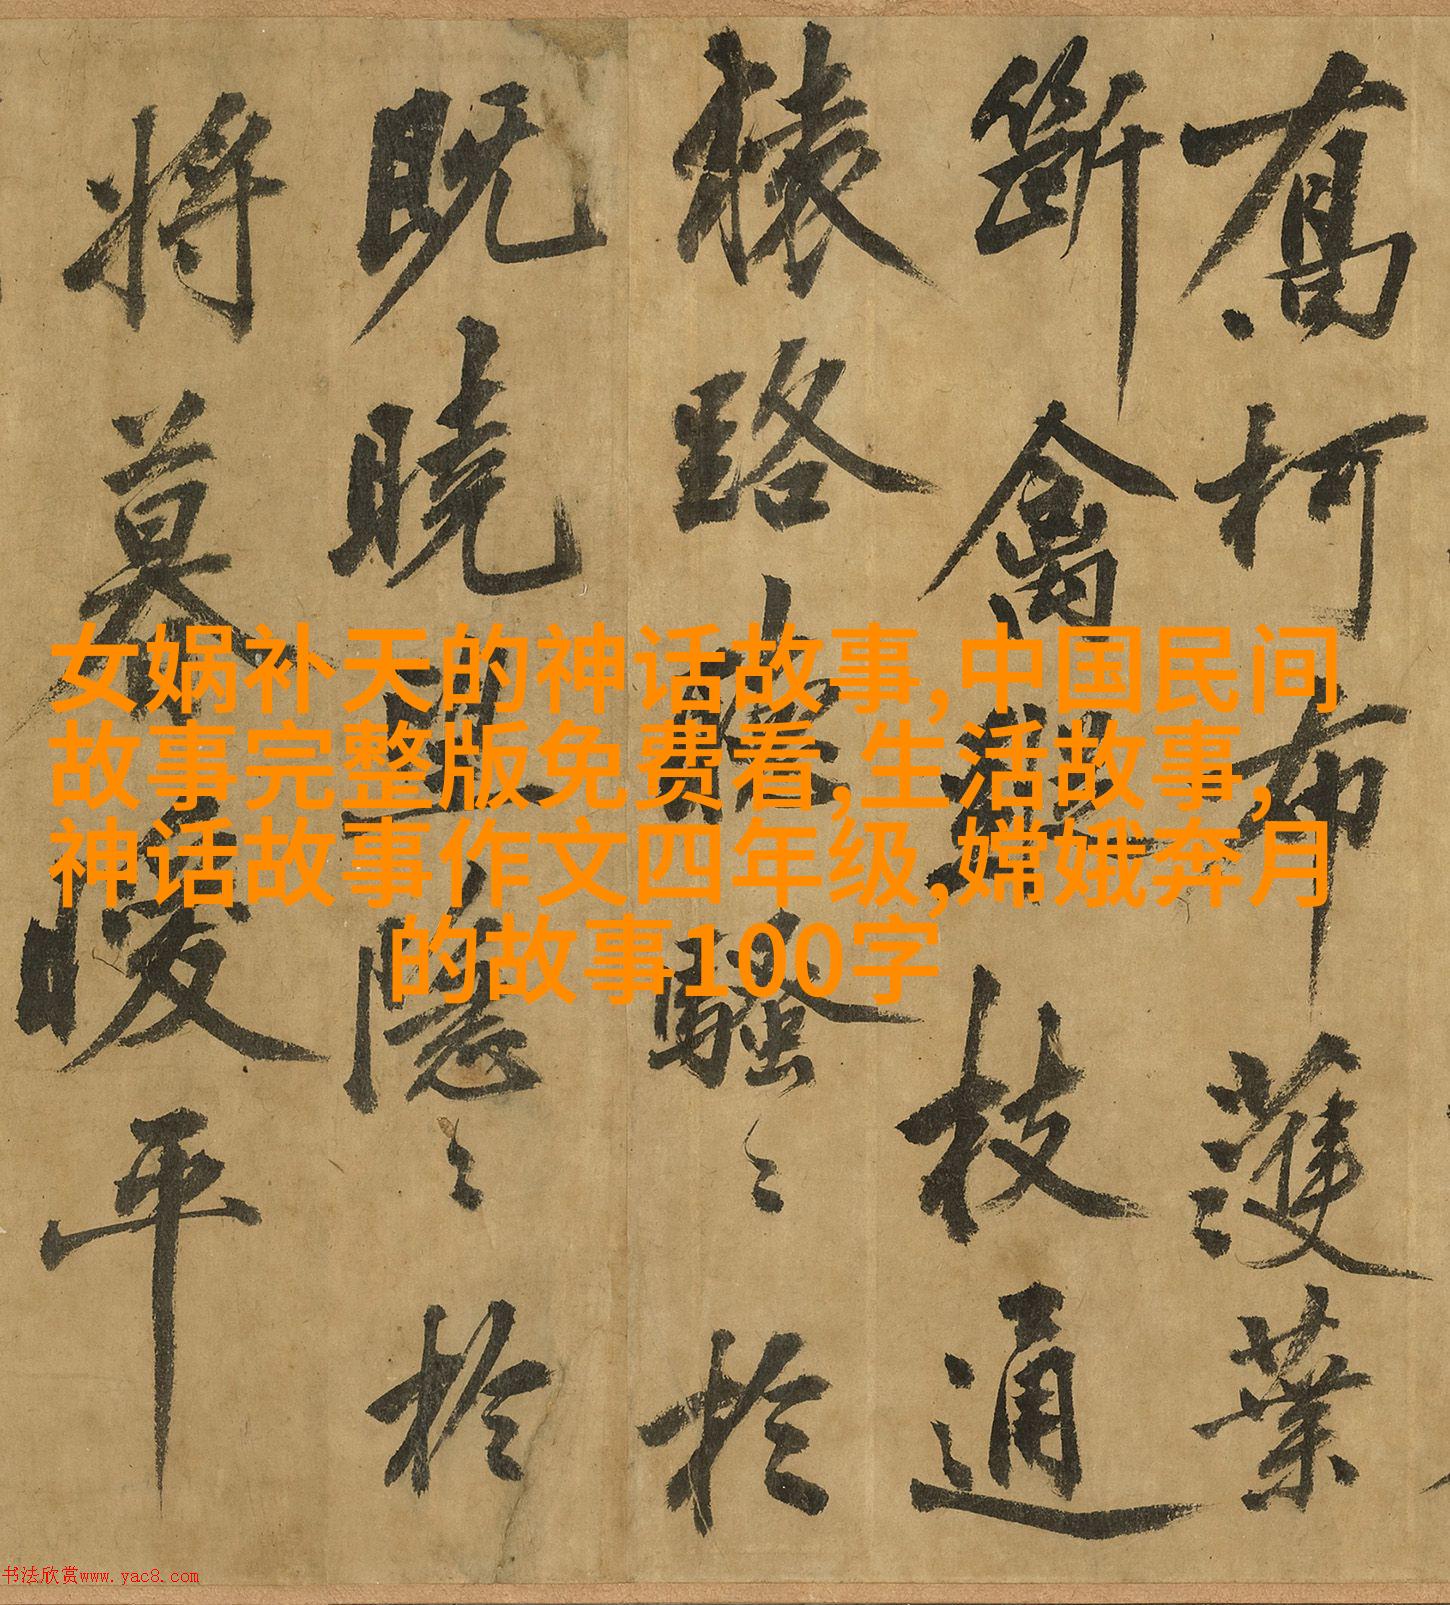 女娲补天的神话故事,中国民间
故事完整版免费看,生活故事,
神话故事作文四年级,嫦娥奔月
的故事100字
喬柯布濩葉
斷禽枝通
猿路騷〻於
既曉隱〻於
將暮暖平
书法欣赏www.yac8.com